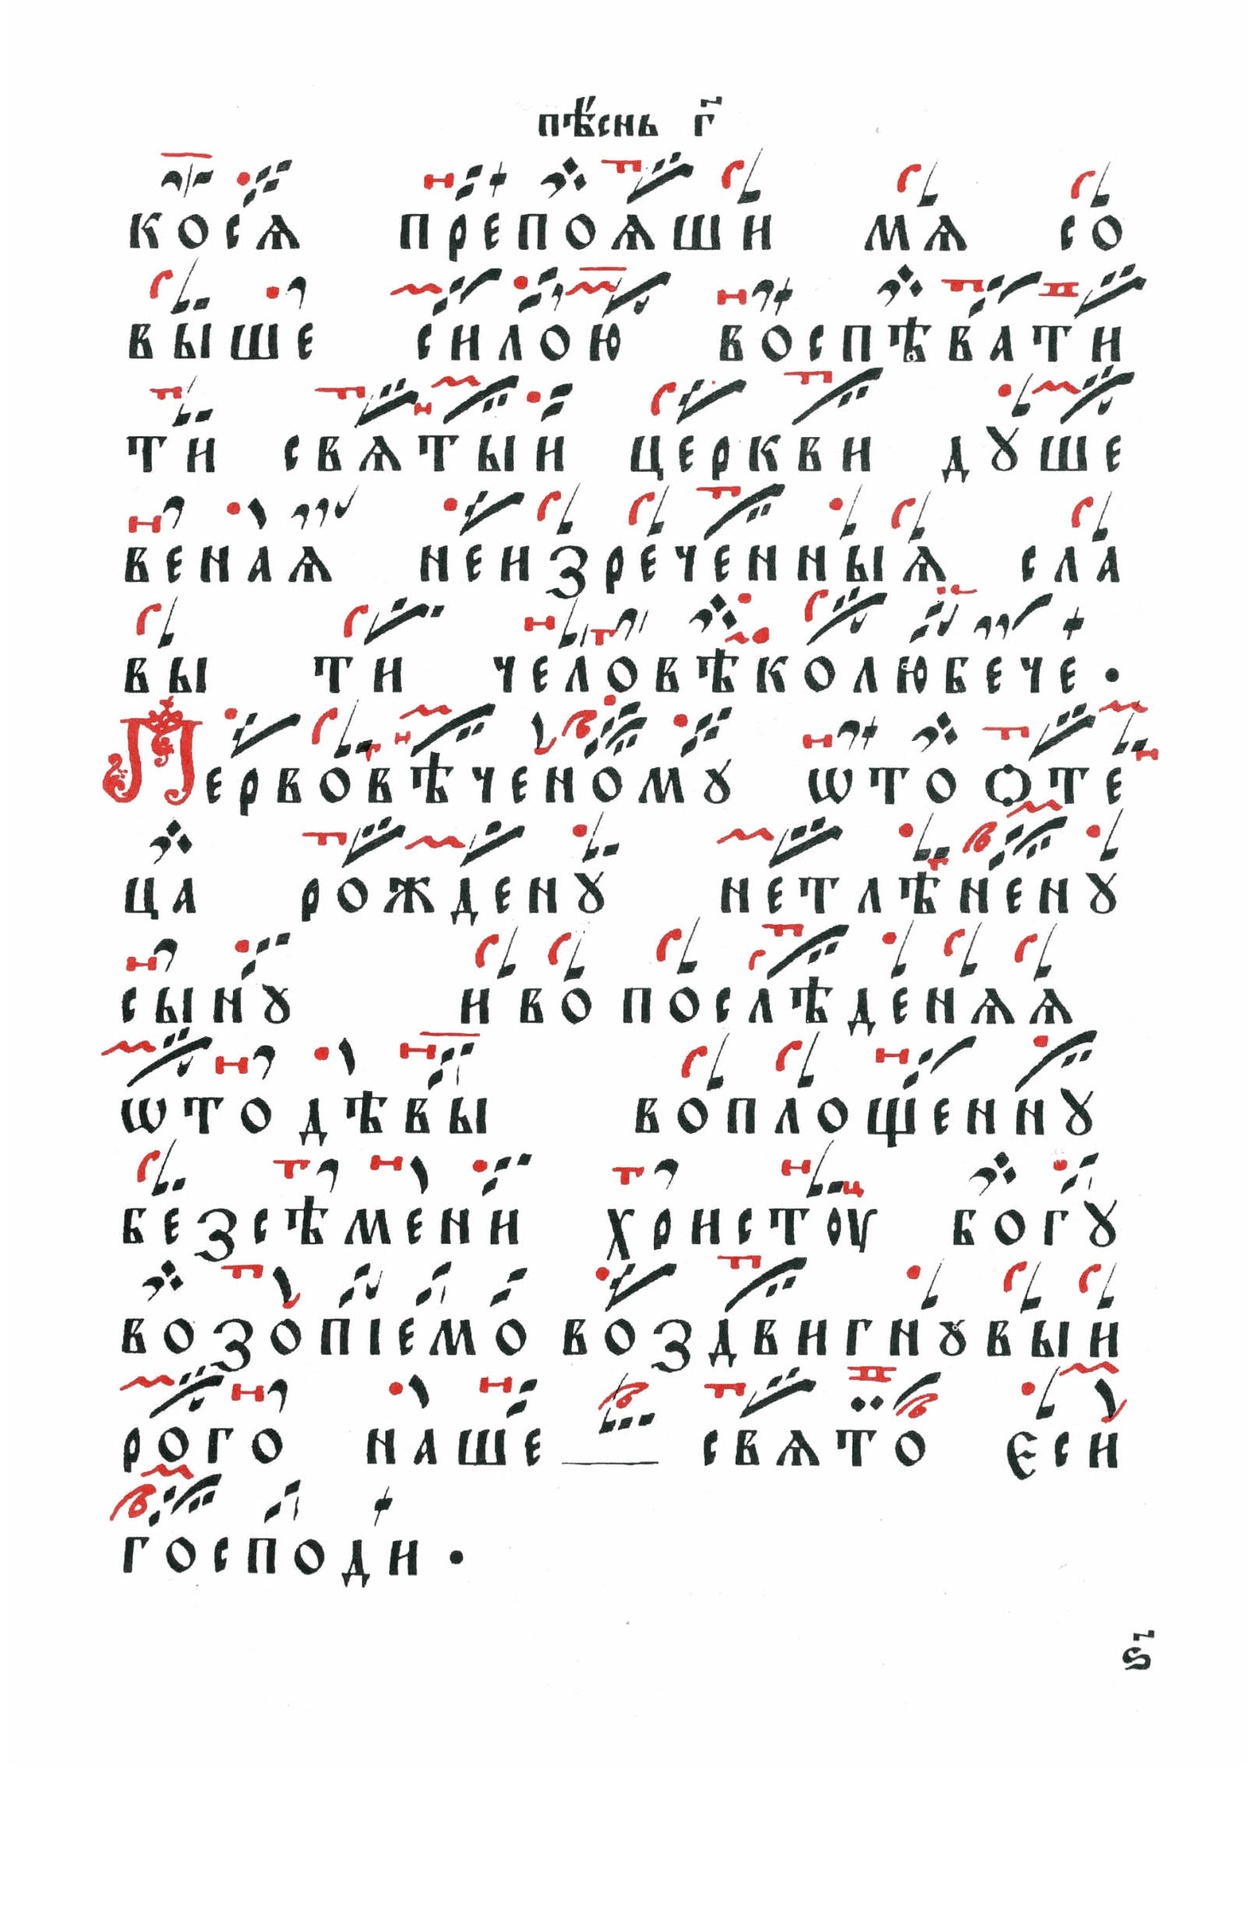 пѣснь г҃
косѧ препоѧши мѧ со
выше силою воспѣвати
ти свѧтыи церкви дꙋше
венаѧ неизреченныѧ сла
вы ти человѣколюбече ·
Первовѣченомꙋ ѡто ѻте
ца рожденꙋ нетлѣненꙋ
сынꙋ и во послѣденѧѧ
ѡто дѣвы воплощеннꙋ
безсѣмени христоу богꙋ
возопіемо воздвигнꙋвыи
рого наше свѧто єси
господи ·
ѕ҃